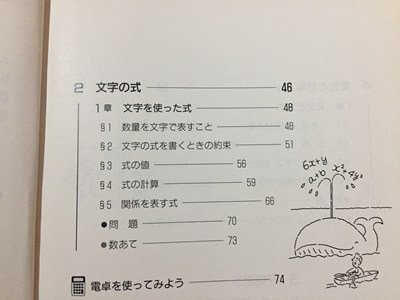 2 文字の式 46
1章 文字を使った式 48
§1 数量を文字で表すこと 48
§2 文字の式を書くときの約束 51
§3 式の値 56
§4 式の計算 59
§5 関係を表す式 66
●問 題 70
●数あて 73
電卓を使ってみよう 74
6x+y
a+b
x²+4y²